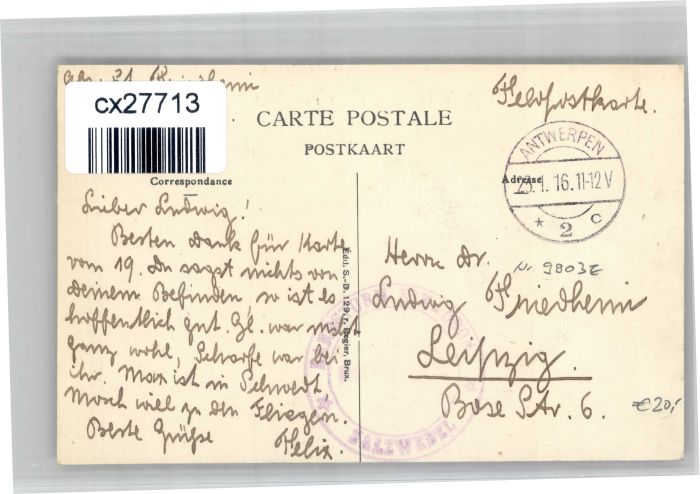 cx27713
Feldpostkarte.
CARTE POSTALE
POSTKAART
Correspondance
Adresse
ANTWERPEN
23.1.16.11-12V
* 2 c
Lieber Ludwig!
Besten Dank für Karte
vom 19. Du sagst nichts von
deinem Befinden, so ist es
hoffentlich gut. war nicht
ganz wohl, Scharfe war bei
ihr. Max ist in Schwedt,
will zu den Fliegern.
Beste Grüße
Felix.
Edit. S.-D. 129, r. Rogier, Brux.
Herrn Dr.
Nr 9803E
Ludwig Friedheim
Leipzig.
Bose Str. 6.
€20,-
SALZWEDEL